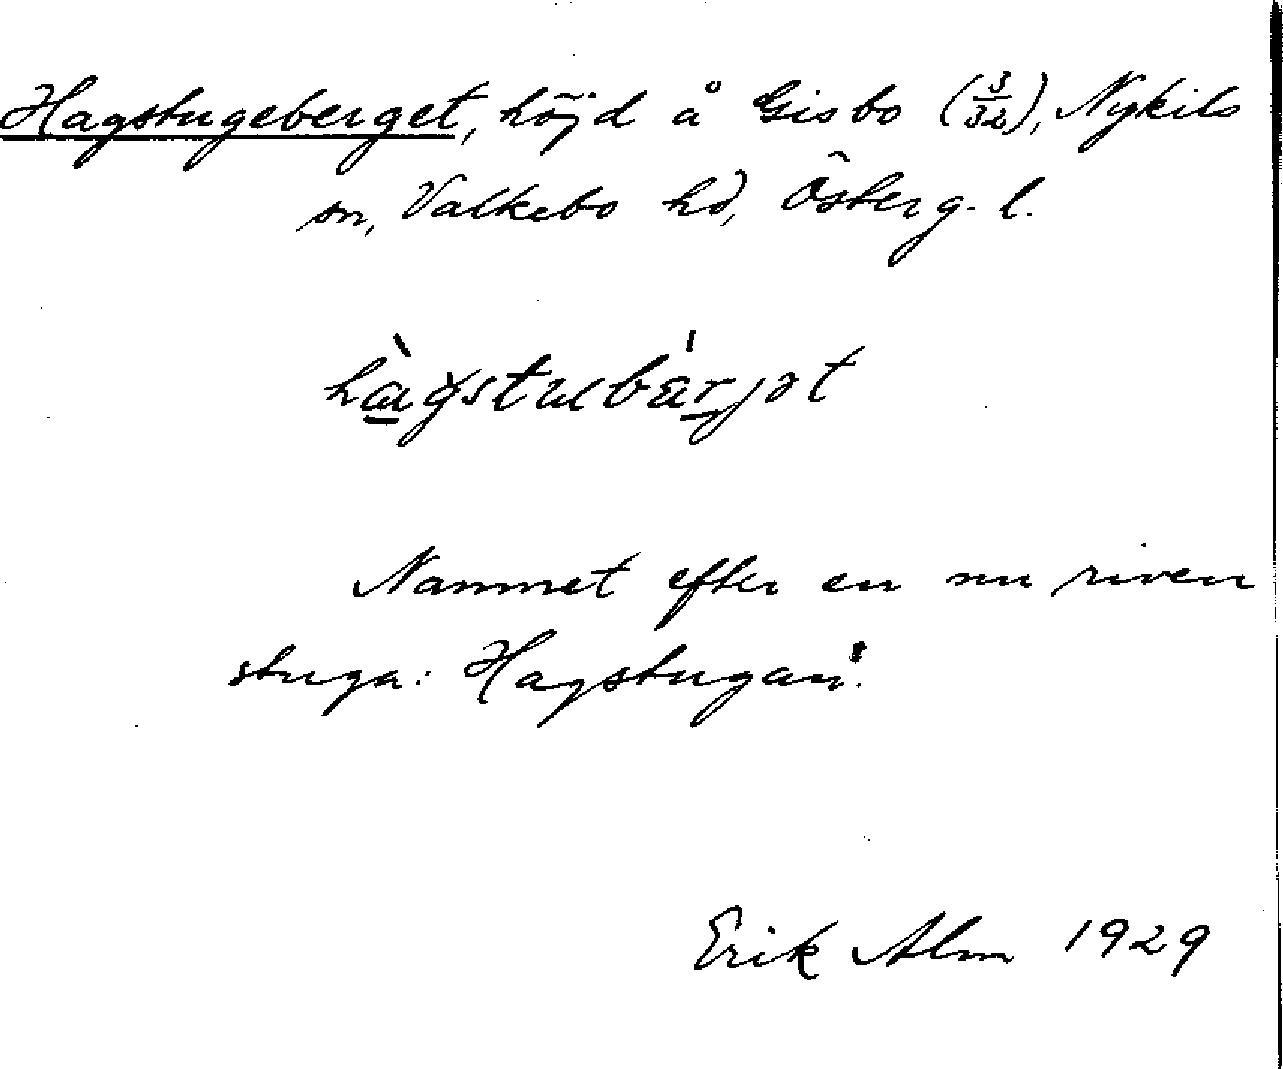 Hagstugeberget, höjd å Gisbo (3/32), Nykils
sn, Valkebo hd, Österg. l.
hàgstubärjət
Namnet efter en nu riven
stuga: Hagstugan.
Erik Alm 1929